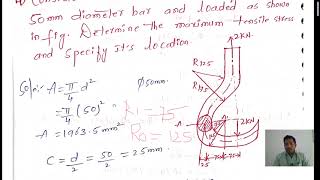 50mm diameter bar and loaded as shown
in fig. Determine the maximum tensile stress
and specify it's location.
Soln:- A = π/4 d²
= π/4 (50)²
A = 1963.5 mm²
C = d/2 = 50/2 = 25mm
Ø50mm
Ri = 75
Ro = 125
R125
2KN
2KN